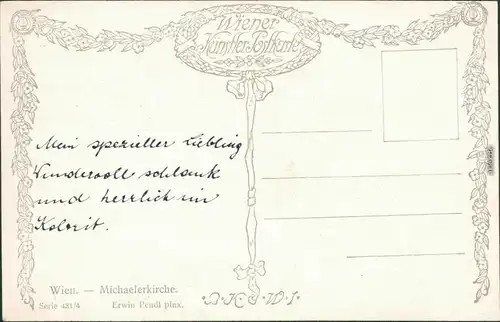 Wiener
Künstler-Postkarte
Mein spezieller Liebling
Wundervoll schlank
und herrlich im
Kolorit.
Wien. — Michaelerkirche.
Serie 481/4 Erwin Pendl pinx.
B.K.W.I.